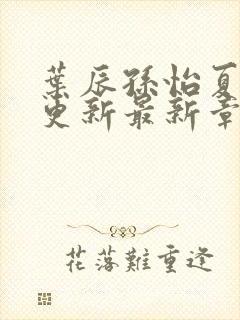 葉辰孫怡夏
更新最新章
花落難重逢